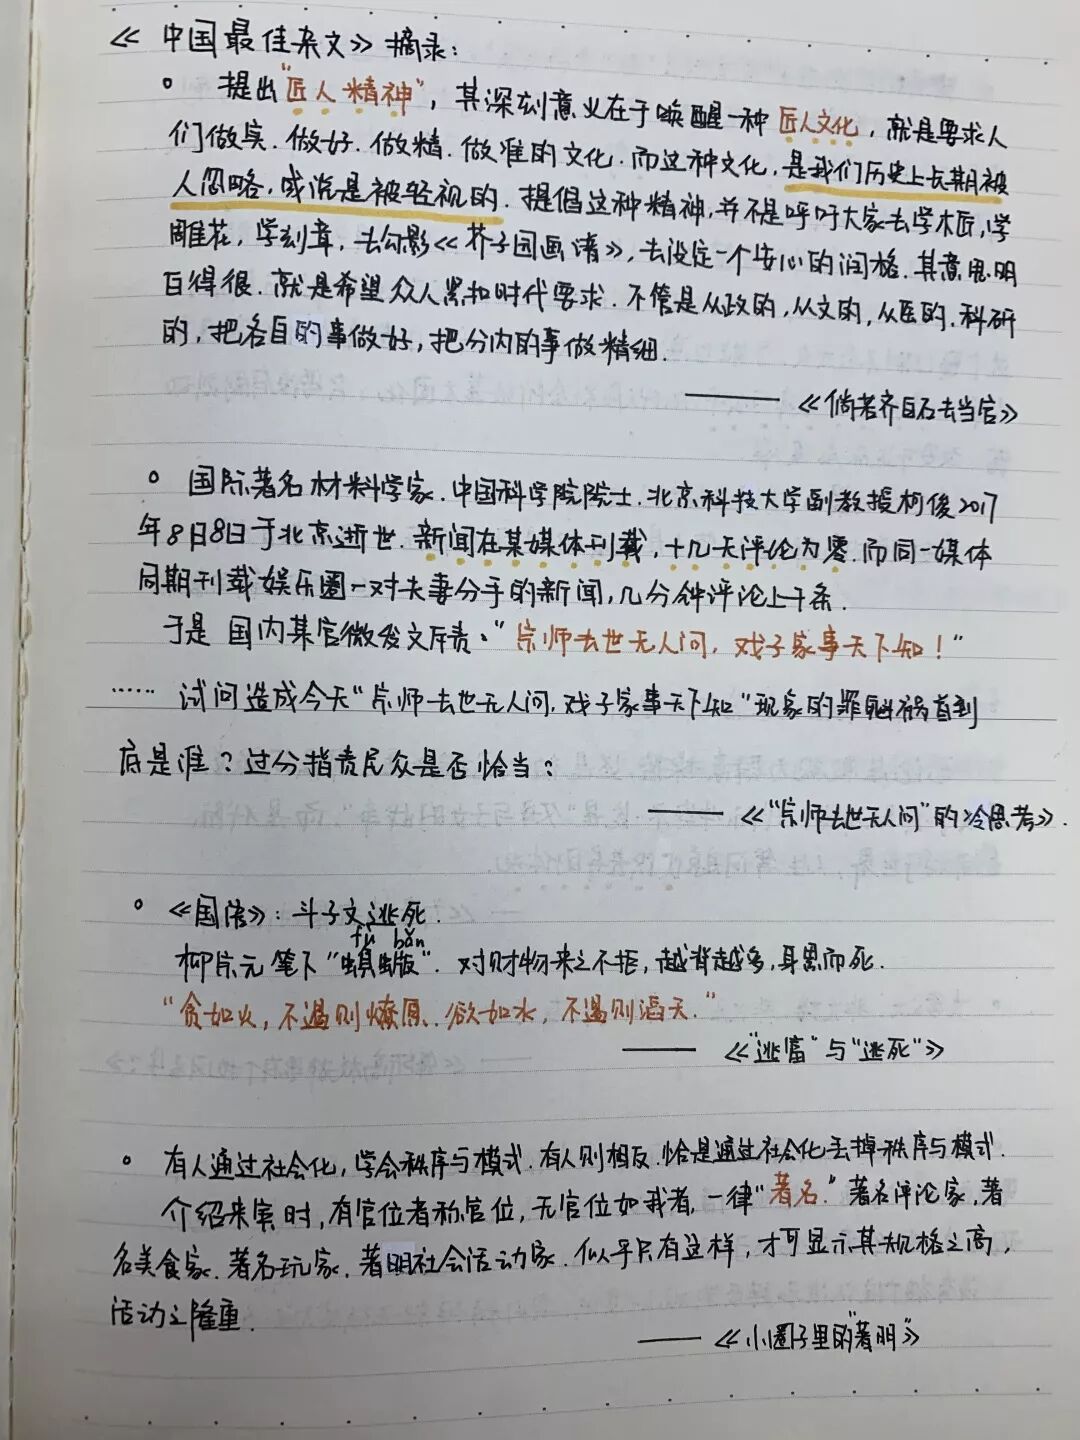 《中国最佳杂文》摘录:
提出"匠人精神",其深刻意义在于唤醒一种匠人文化,就是要求人
们做实.做好.做精.做准的文化.而这种文化,是我们历史上长期被
人忽略,或说是被轻视的.提倡这种精神,并不是呼吁大家去学木匠,学
雕花,学刻章,去勾影《芥子园画谱》,去设定一个安心的润格.其意思明
白得很.就是希望众人紧扣时代要求.不管是从政的,从文的,从医的.科研
的,把各自的事做好,把分内的事做精细.
——《倘若齐白石去当官》
国际著名材料学家.中国科学院院士.北京科技大学副教授柯俊2017
年8月8日于北京逝世.新闻在某媒体刊载,十几天评论为零.而同一媒体
同期刊载娱乐圈一对夫妻分手的新闻,几分钟评论上千条.
于是国内某官微发文斥责:"宗师去世无人问,戏子家事天下知!"
…… 试问造成今天"宗师去世无人问,戏子家事天下知"现象的罪魁祸首到
底是谁?过分指责民众是否恰当?
——《"宗师去世无人问"的冷思考》.
《国语》:斗子文逃死.
fù bǎn
柳宗元笔下"蝜蝂".对财物来之不拒,越背越多,身累而死.
"贪如火,不遏则燎原.欲如水,不遏则滔天."
——《"逃富"与"逃死"》
有人通过社会化,学会秩序与模式.有人则相反.恰是通过社会化丢掉秩序与模式.
介绍来宾时,有官位者称官位,无官位如我者,一律"著名."著名评论家,著
名美食家.著名玩家.著明社会活动家.似乎只有这样,才可显示其规格之高,
活动之隆重.
——《小圈子里的"著明"》